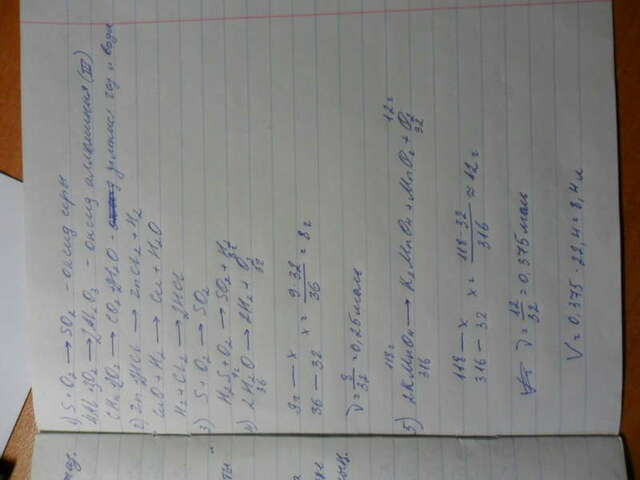 1) S + O₂ → SO₂ - оксид серы
4Al + 3O₂ → 2Al₂O₃ - оксид алюминия (III)
CH₄ + 2O₂ → CO₂ + 2H₂O - углекисл. газ и вода
2) Zn + 2HCl → ZnCl₂ + H₂
CuO + H₂ → Cu + H₂O
H₂ + Cl₂ → 2HCl
3) S + O₂ → SO₂
H₂S + O₂ → SO₂ + H₂
4) 2H₂O → 2H₂ + O₂
36 32
9г — x x = 9·32 / 36 = 8г
36 — 32
ν = 8/32 = 0,25 моль
118г 12г
5) 2KMnO₄ → K₂MnO₄ + MnO₂ + O₂
316 32
118 — x x = 118·32 / 316 ≈ 12г
316 — 32
ν = 12/32 = 0,375 моль
V = 0,375 · 22,4 = 8,4 л